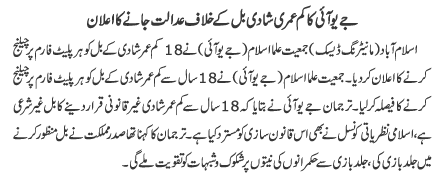 جے یو آئی کا کم عمری شادی بل کے خلاف عدالت جانے کا اعلان
اسلام آباد (مانیٹرنگ ڈیسک) جمعیت علما اسلام (جے یو آئی) نے 18 کم عمر شادی کے بل کو ہر پلیٹ فارم پر چیلنج
کرنے کا اعلان کر دیا۔ جمعیت علما اسلام (جے یو آئی) نے 18 سال سے کم عمر شادی کے بل کو ہر پلیٹ فارم پر چیلنج
کرنے کا فیصلہ کر لیا۔ ترجمان جے یو آئی نے بتایا کہ 18 سال سے کم عمر شادی غیر قانونی قرار دینے کا بل غیر شرعی
ہے، اسلامی نظریاتی کونسل نے بھی اس قانون سازی کو مسترد کیا ہے۔ ترجمان کا کہنا تھا صدر مملکت نے بل منظور کرنے
میں جلد بازی کی، جلد بازی سے حکمرانوں کی نیتوں پر شکوک و شبہات کو تقویت ملے گی۔